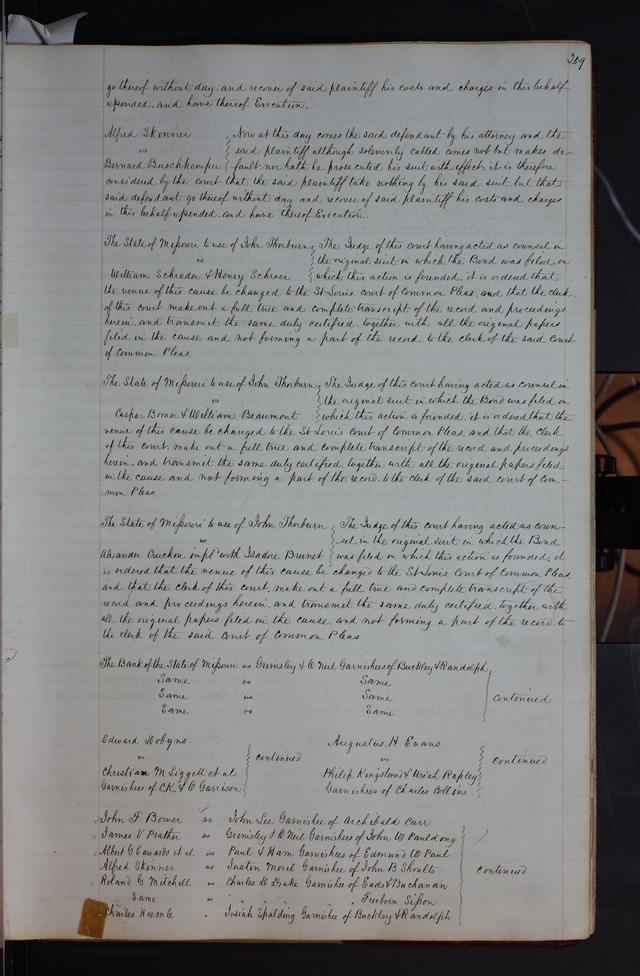 209
go thereof without day, and recover of said plaintiff his costs and charges in this behalf
expended, and have thereof Execution.
Alfred Skinner
vs
Bernard Buschkemper
Now at this day comes the said defendant by his attorney and the
said plaintiff although solemnly called comes not but makes de-
fault nor hath he prosecuted his suit with effect, it is therefore
considered by the court that the said plaintiff take nothing by his said suit but that
said defendant go thereof without day and recover of said plaintiff his costs and charges
in this behalf expended, and have thereof Execution.
The State of Missouri to use of John Thorburn
vs
William Schrader & Henry Schroer
The Judge of this court having acted as counsel in
the original suit on which the Bond was filed on
which this action is founded, it is ordered that
the venue of this cause be changed to the St Louis court of Common Pleas, and that the clerk
of this court make out a full true and complete transcript of the record and proceedings
herein, and transmit the same duly certified, together with all the original papers
filed in the cause and not forming a part of the record, to the clerk of the said Court
of Common Pleas
The State of Missouri to use of John Thorburn
vs
Caspar Bomer & William Beaumont
The Judge of this court having acted as counsel in
the original suit in which the Bond was filed on
which this action is founded, it is ordered that the
venue of this cause be changed to the St Louis court of Common Pleas, and that the Clerk
of this court, make out a full true and complete transcript of the record and proceedings
herein, and transmit the same duly certified, together with all the original papers filed
in the cause and not forming a part of the record, to the clerk of the said court of Com-
mon Pleas
The State of Missouri to use of John Thorburn
vs
Alexander Cruchon impl'd with Isadore Brunet
The Judge of this court having acted as coun-
sel in the original suit in which the Bond
was filed on which this action is founded, it
is ordered that the venue of this cause be changed to the St Louis Court of Common Pleas,
and that the clerk of this court, make out a full true and complete transcript of the
record and proceedings herein, and transmit the same duly certified, together with
all the original papers filed in the cause and not forming a part of the record, to
the clerk of the said Court of Common Pleas
The Bank of the State of Missouri vs Grimsley & O Neil Garnishees of Buckley & Randolph
Same vs Same
Same vs Same
Same vs Same
continued
Edward Dobyns
vs
Christiam M Liggett et al
Garnishees of C.K. & O Garrison
continued
Augustus H Evans
vs
Philip Kingsland & Uriah Rapley
Garnishees of Charles Collins
continued
John F Bower vs John Lee Garnishee of Archibald Carr
James V Prather vs Grimsley & O Neil Garnishees of John W Paulding
Albert G Edwards et al vs Paul & Ham Garnishees of Edmund W Paul
Alfred Skinner vs Justin Morel Garnishee of John B Shoults
Roland G Mitchell vs Charles D Drake Garnishee of Eads & Buchanan
Same " " " " Freeborn Sisson
Charles Keemle " Josiah Spalding Garnishee of Buckley & Randolph
continued